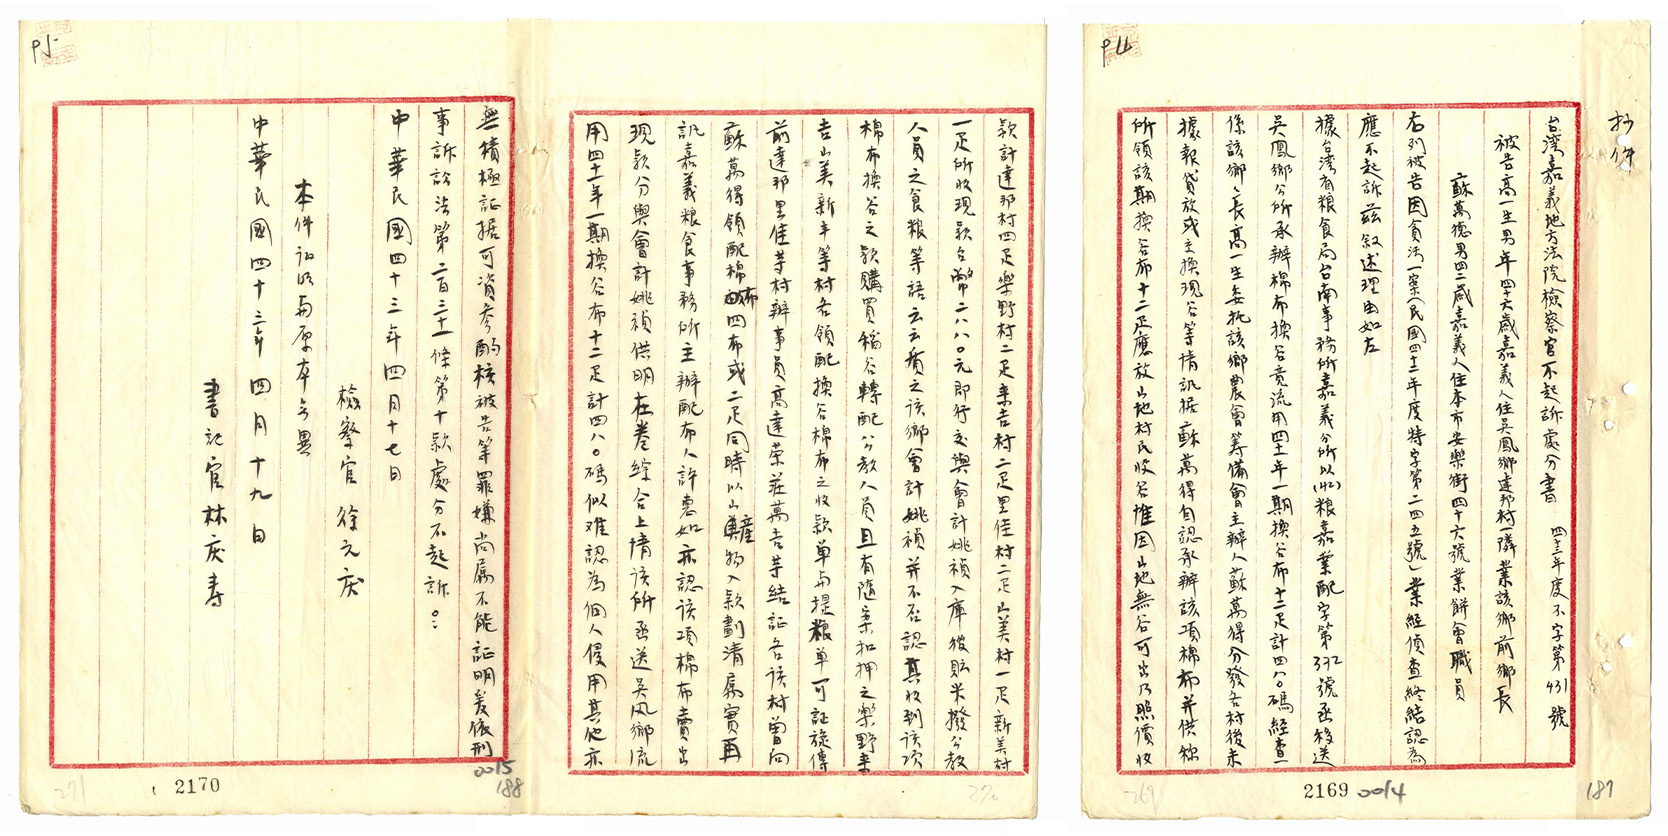 P4
抄件
台湾嘉義地方法院檢察官不起訴處分書 四十三年度不字第431號
被告高一生男年四十六歲嘉義人住吳鳳鄉達邦村一隣業該鄉前鄉長
蘇萬德男四二歲嘉義人住本市安樂街四十六號業餅會職員
右列被告因貪污一案(民國四十二年度特字第二四五號)業經偵查終結認為
應不起訴茲敘述理由如左
據台湾省粮食局台南事務所嘉義分所以(42)粮嘉業配字第332號函移送
吳鳳鄉公所承辦棉布換谷竟流用四十一年一期換谷布十二疋計四八〇碼經查
係該鄉鄉長高一生委托該鄉農會筹備會主辦人蘇萬得分發各村後未
據報貸放或主換現谷等情訊据蘇萬得自認承辦該項棉布并供称
所領該期換谷布十二疋應放山地村民收谷惟因山地無谷可出乃照價收
2169
0014
187
269
款計達邦村四疋樂野村二疋来吉村二疋里佳村二疋山美村一疋新美村
一疋所收現款台幣二八八〇元即行交與會計姚禎入庫後貼米撥公教
人員之食粮等語云云質之该鄉會計姚禎并不否認其收到该项
棉布換谷之款購買稻谷轉配公教人員且有隨案扣押之樂野来
吉山美新美等村各領配換谷棉布之收款单与提粮单可証旋傳
前達邦里佳等村辦事員高達荣莊萬吉等結証各该村曾向
蘇萬得領配棉布四布或二疋同時以山產物入款劃清属實再
訊嘉義粮食事務所主辦配布人許惠如亦認该項棉布賣出
現款分與會計姚禎供明在卷綜合上情该所函送吳凤鄉流
用四十一年一期換谷布十二疋計四八〇碼似难認為個人侵用其他亦
270
P5
無積極証据可資参酌核被告等罪嫌尚属不能証明爰依刑
事訴訟法第二百三十一條第十款處分不起訴。
中華民國四十三年四月十七日
檢察官徐元庆
本件証明与原本無異
中華民國四十三年四月十九日
書記官林庆寿
0015
188
2170
271